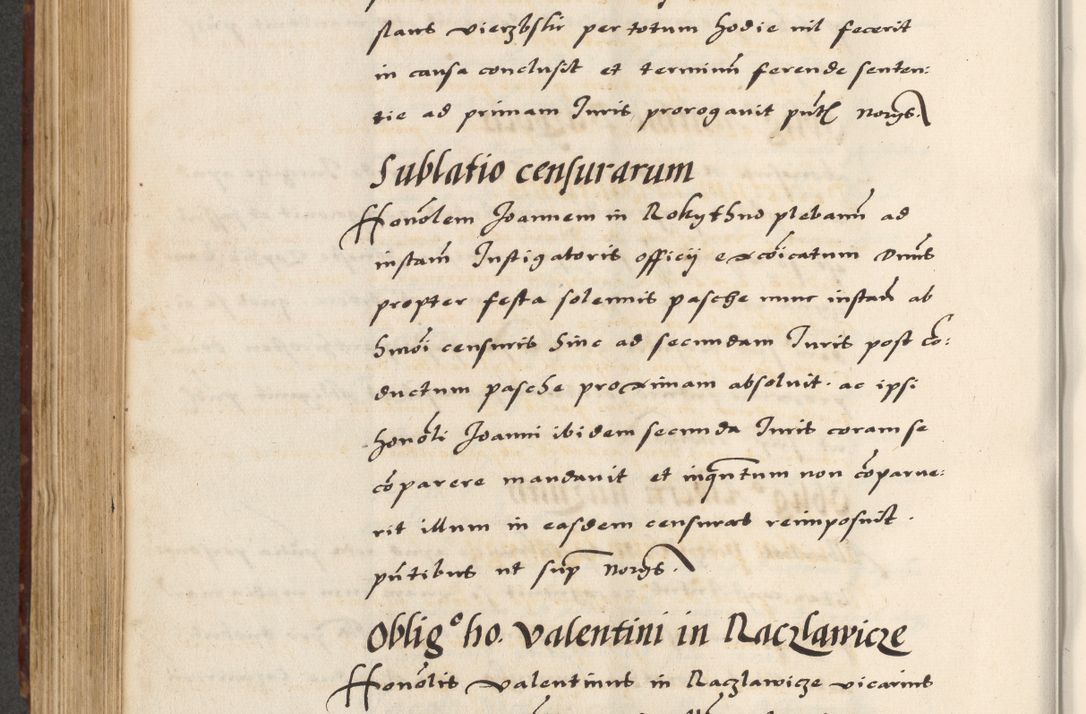 slaus vierzbskÿ per totum hodie nil fecerit
in causa conclusit et terminũ ferende senten:
tie ad primam Juris prorogavit pñt Norijs.
Sublatio censurarum
Honõlem Joannem in Rokythno plebanũ ad
instam̃ Instigatoris officij excõicatum Dnũs
propter festa solennis pasche nunc instañ ab
hmõi censuris hinc ad secundam Juris post cõ:
ductum pasche proximam absoluit. ac ipsi
honõli Joanni ibidem secunda Juris coram se
cõparere mandavit et inquãtum non cõparue:
rit illum in easdem censuras reimposuit.
pñtibus ut sup̃ Norijs.
Oblig.º ho. Valentini in Raczlawicze
Honõlis Valentinus in Raczlawicze vicarius